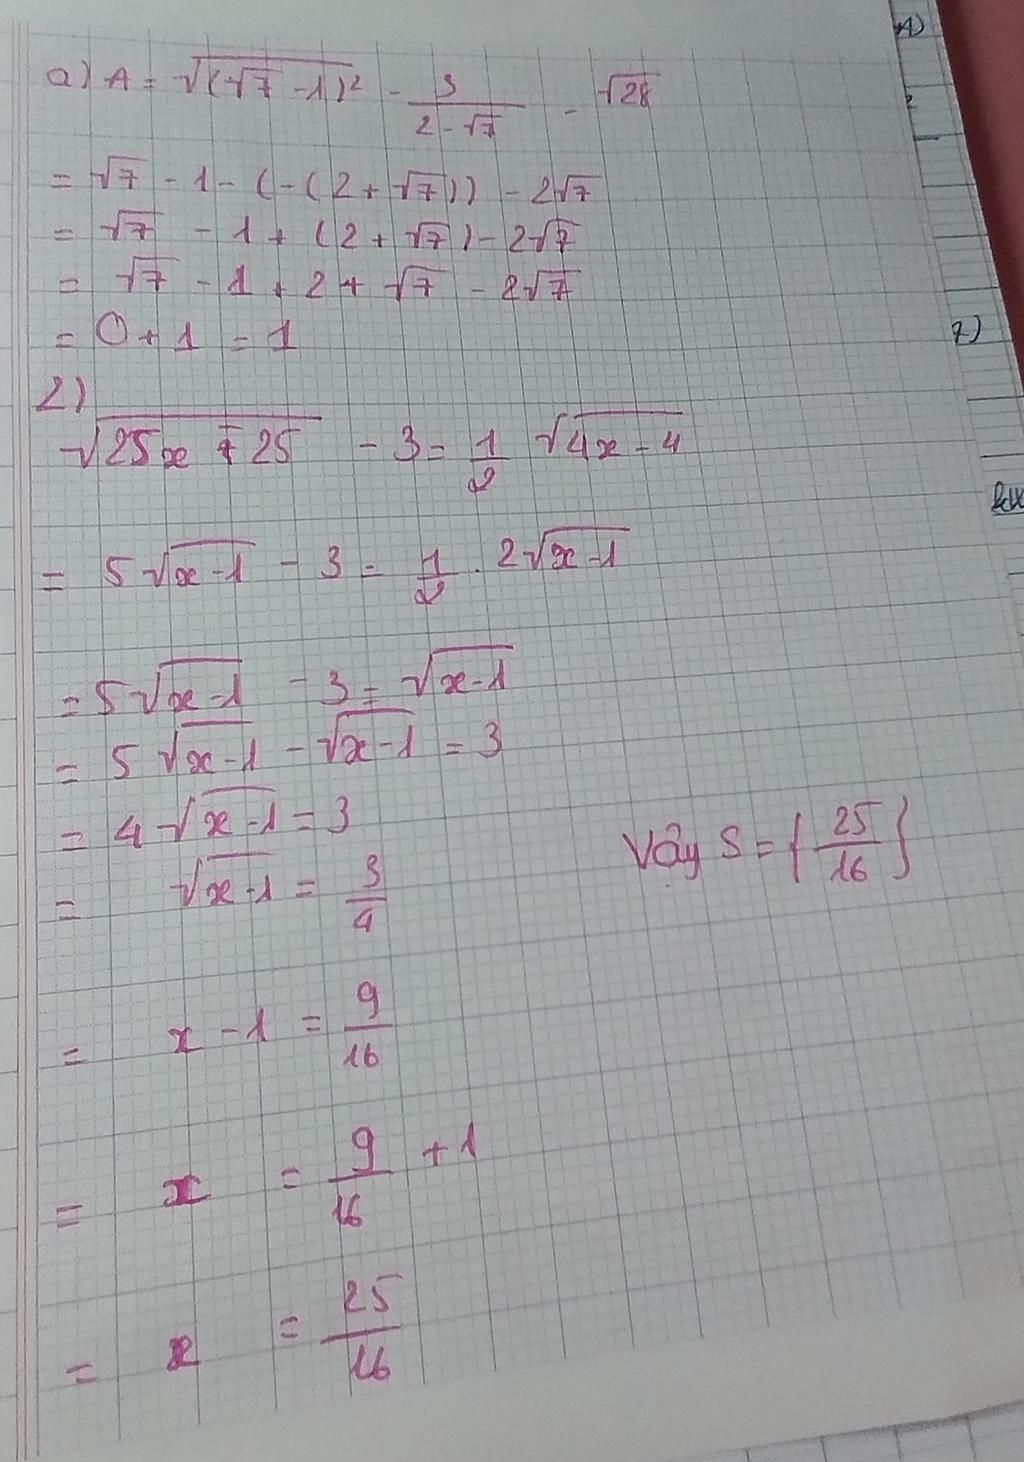 a) A = √(√7 - 1)² - 3/(2 - √7) - √28
= √7 - 1 - (-(2 + √7)) - 2√7
= √7 - 1 + (2 + √7) - 2√7
= √7 - 1 + 2 + √7 - 2√7
= 0 + 1 = 1
2)
√25x - 25 - 3 = 1/2 √4x - 4
= 5√x - 1 - 3 = 1/2 . 2√x - 1
= 5√x - 1 - 3 = √x - 1
= 5√x - 1 - √x - 1 = 3
= 4√x - 1 = 3
= √x - 1 = 3/4
Vây S = {25/16}
= x - 1 = 9/16
= x = 9/16 + 1
= x = 25/16
A)
7)